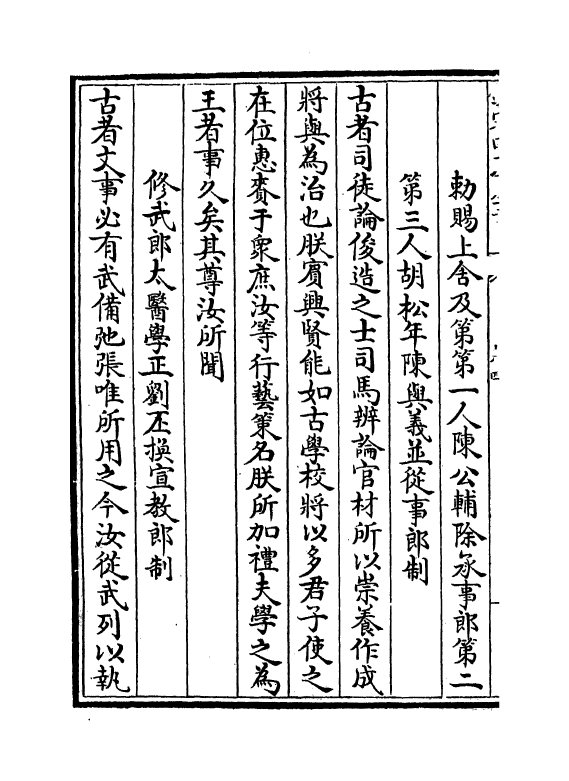 勅賜上舍及第第一人陳公輔除承事郎第二
第三人胡松年陳與義並從事郎制
古者司徒論俊造之士司馬辨論官材所以崇養作成
將與為治也朕賓興賢能如古學校將以多君子使之
在位惠賚于衆庶汝等行藝策名朕所加禮夫學之為
王者事久矣其尊汝所聞
修武郎太醫學正劉丕換宣教郎制
古者文事必有武備弛張唯所用之今汝從武列以執